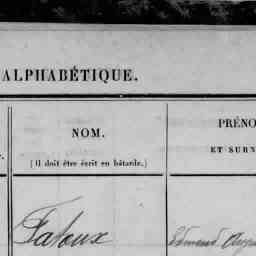 ALPHABÉTIQUE.
NOM.
(Il doit être écrit en bâtarde.)
PRÉNO
ET SURN
Fatoux
Edmond Augu